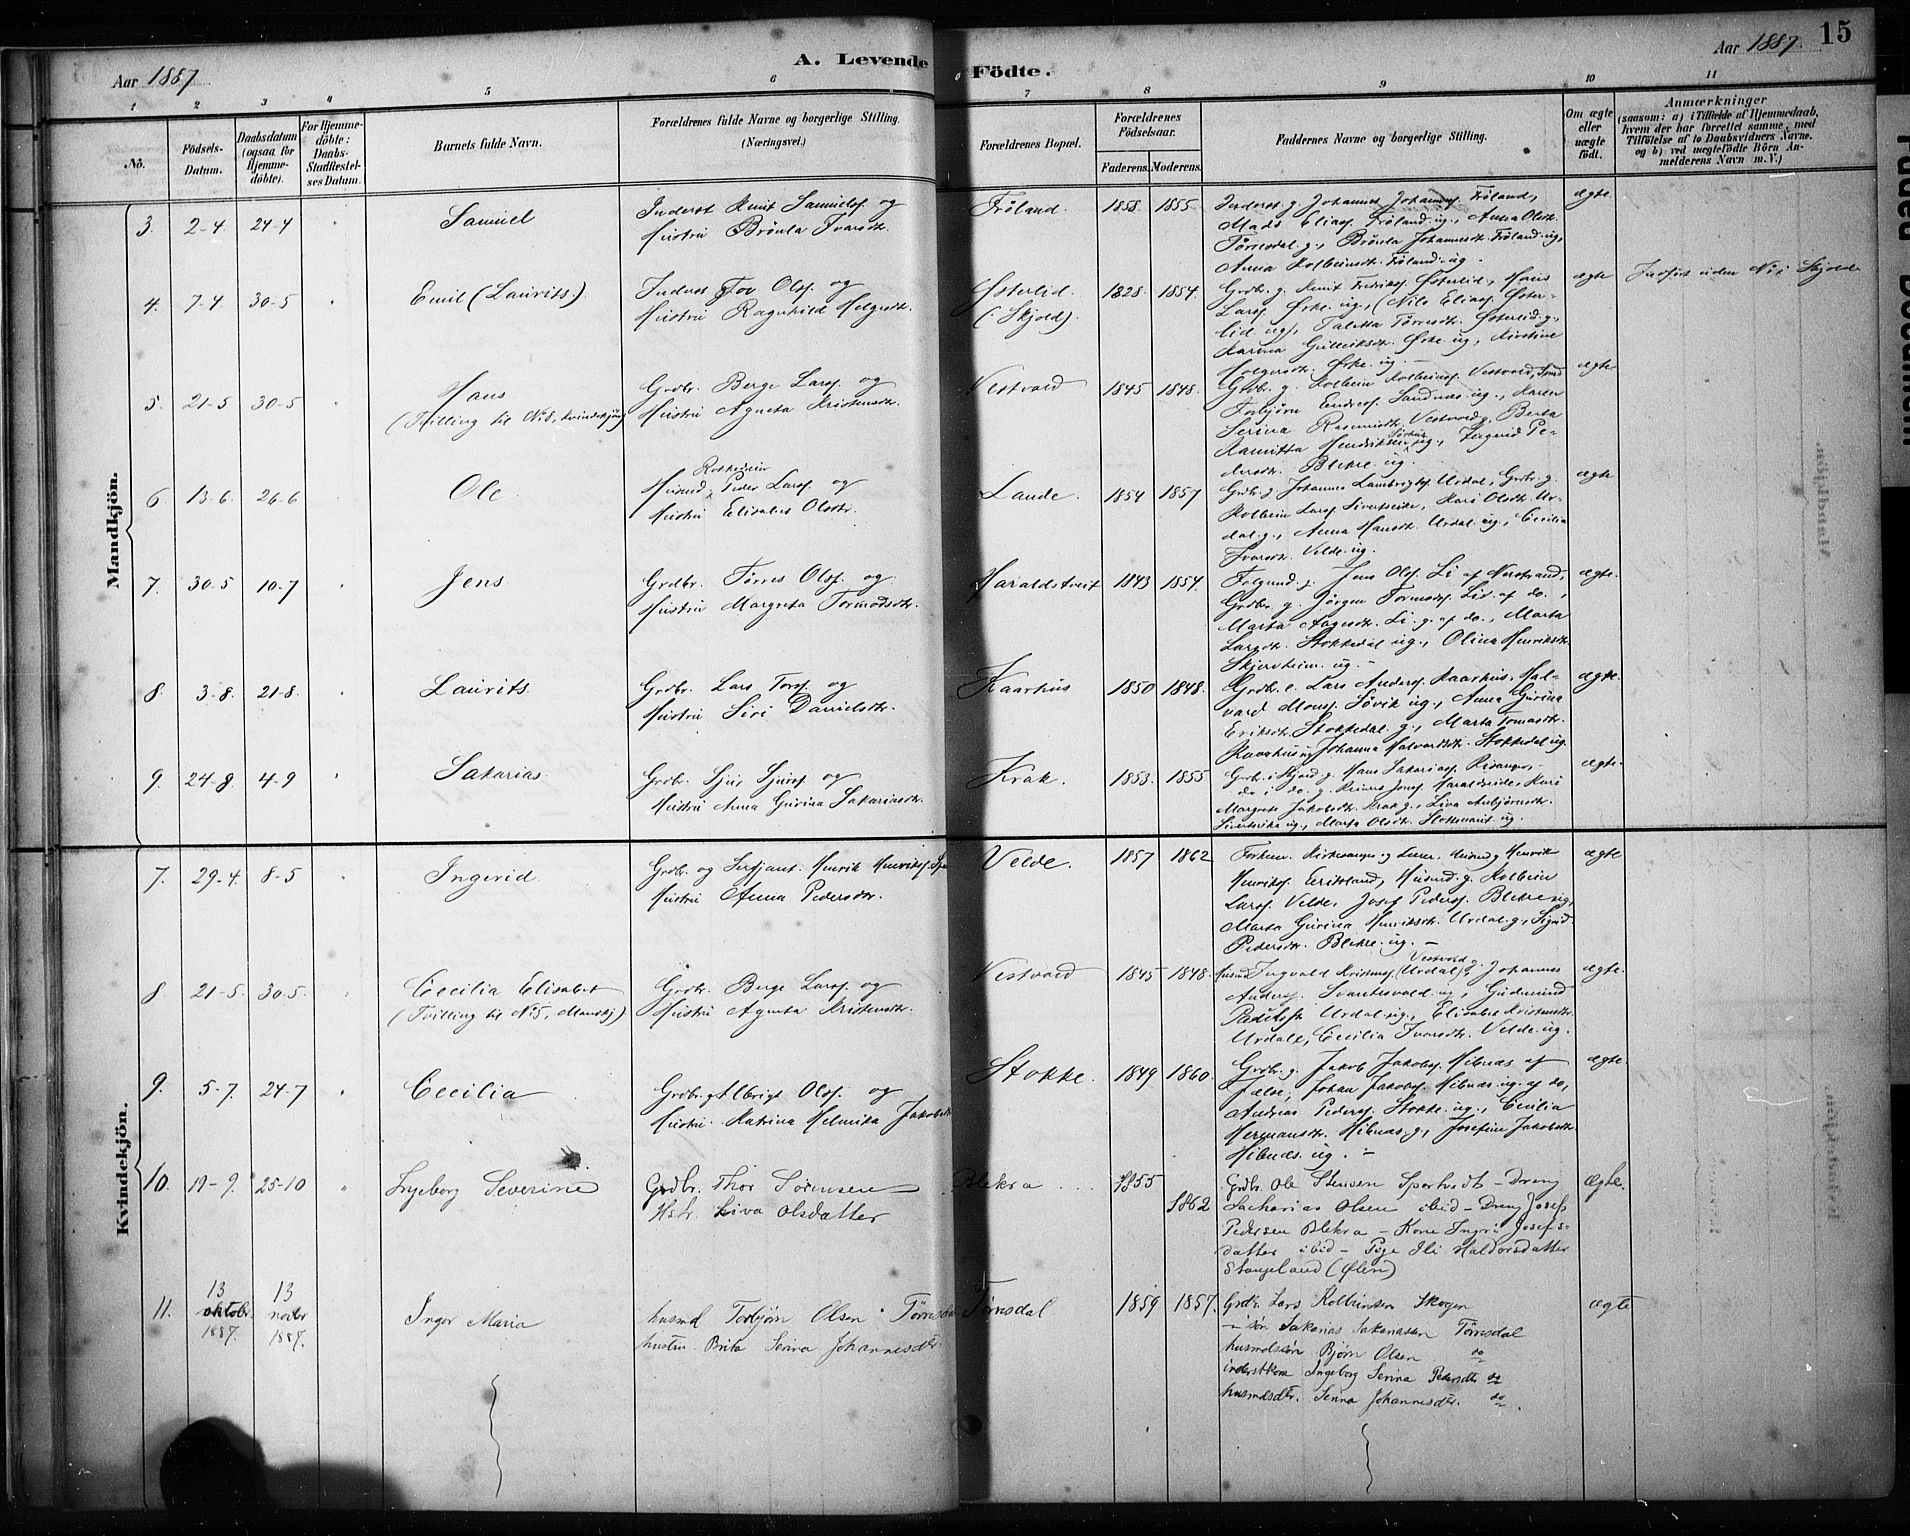 Aar 1887.
A. Levende Födte.
Aar 1887. 15
1 2 3 4 5 6 7 8 9 10 11
No.
Födsels-Datum.
Daabsdatum (ogsaa for Hjemmedöbte).
For Hjemmedöbte: Daabs-Stadfæstelses Datum.
Barnets fulde Navn.
Forældrenes fulde Navne og borgerlige Stilling. (Næringsvei.)
Forældrenes Bopæl.
Forældrenes Födselsaar.
Faderens. Moderens.
Faddernes Navne og borgerlige Stilling.
Om ægte eller uægte födt.
Anmærkninger
(saasom: a) i Tilfælde af Hjemmedaab, hvem der har forrettet samme, med Tilföielse af to Daabsvidners Navne, og b) ved uægtefödte Börn Anmelderens Navn m. V.)
Mandkjön.
3. 2-4. 24-4 Samuel
Inderst Knut Samuels. og
Hustru Brønla Ivarsdr.
Frøland. 1858. 1855.
Inderst g. Johannes Johannes. Frøland,
Mads Elias. Frøland ug., Anna Olsdr.
Tørresdal g., Brønla Johannesdr. Frøland ug,
Anna Kolbeinsdr. Frøland ug.
ægte.
4. 7-4. 30-5 Emil (Laurits).
Inderst Tov Ols. og
Hustru Ragnhild Helgesdr.
Østerlid. (Skjold). 1828. 1854.
Grdbr. g. Knut Fredriks. Østerlid, Hans
Lars. Ørke ug., (Nils Elias. Øster-
lid ug), Taletta Tørresdr. Østerlid g.,
Karina Gulleiksdr. Ørke ug, Kirstine
Holgersdr. Ørke ug. —
ægte
Indført uden No i Skjold
5. 21-5 30-5 Hans
(Tvilling til No 8, Kvindekjøn)
Grdbr. Berge Lars. og
Hustru Agneta Kristensdr.
Vestvold 1845 1848.
Grdbr. g. Kolbein Kolbeins. Vestvold,
Torbjørn Endres. Sandnæs ug., Karen
Serina Rasmusdr. Vestvold g, Berta
Karnitta Henriksen ug., Ingerid Pe-
dersdr. Blikre ug.
ægte
6. 13-6. 26-6 Ole
Husmd. Peder Lars. og
Hustru Elisabet Olsdr.
Lande. 1854 1857
Grdbr. g. Johannes Lambrigts. Urdal, Grdbr. g.
Kolbein Lars. , Kari Olsdr. Ur-
dal g., Anna Hansdr. Urdal ug., Cecilia
Ivarsdr. Velde ug.
ægte
7. 30-5 10-7 Jens
Grdbr. Tørres Ols. og
Hustru Margreta Tormodsdr.
Haraldstveit 1843 1854.
g. Jens Ols. Li af Nerstrand,
Grdbr. g. Jörgen Tormods. Li af do.,
Marta Aagesdr. Li. g. af do., Marta
Larsdr. Stokkedal ug., Olina Henriksdr.
Skjersheim ug. —
ægte.
8. 3-8. 21-8. Laurits.
Grdbr. Lars Tors. og
Hustru Siri Danielsdr.
Kaarhus 1850 1848.
Grdbr. e. Lars Anders. Kaarhus, Hal-
vard Mons. Søvik ug., Anna Gurina
Eriksdr. Stokkedal g., Marta Tomasdr.
Kaarhus ug, Johanna Halvardsdr. Stokkedal ug.
ægte.
9. 24-8 4-9 Sakarias.
Grdbr. Sjur Sjurs. og
Hustru Anna Gurina Sakariasdr.
Krak. 1853. 1855
Grdbr. i Skjold g. Hans Sakarias.
do i do. g. Reiner Jons. Haraldseide, Kari
Margreta Jakobsdr. Krak g., Liva Asbjørnsdr.
ug., Marta Olsdr. ug.
ægte.
Kvindekjön.
7. 29-4. 8-5 Ingerid.
Grdbr. og Serjant. Henrik Henriks.
Hustru Anna Pedersdr.
Velde. 1857 1862
Forhenv. Kirkesanger og Lærer, Husmd g. Henrik
Henriks. , Husmd. g. Kolbein
Lars. Velde, Josef Peders. Blikre ug,
Marta Gurina Henriksdr. Urdal g., Sigrid
Pedersdr. Blikre ug. —
ægte
8. 21-5. 30-5. Cecilia Elisabet
(Tvilling til No 5, Mandkj)
Grdbr. Berge Lars. og
Hustru Agneta Kristensdr.
Vestvold 1845 1848.
Husmd Ingvald Kristens. (Urdal) Vestvold g., Johannes
Anders. Svartesvold ug, Gudmund
Urdal ug., Elisabet Kristensdr.
Urdal g, Cecilia Ivarsdr. Velde ug.
ægte.
9. 5-7. 24-7 Cecilia
Grdbr. g. Albrigt Ols. og
Hustru Katrina Helmika Jakobsdr
Stokke. 1849 1860.
Grdbr. g. Jakob Jakobs. Hibnæs af
Jælse, Johan Jakobs. Hibnæs ug. af do,
Andrias Peders. Stokke ug., Cecilia
Hermansdr. Hibnæs g., Josefine Jakobsdr.
Hibnæs ug. —
ægte.
10. 19-9. 25-10 Ingeborg Severine
Grdbr. Thor Sörensen
Hstr. Liva Olsdatter
Blekra 1855 1862
Grdbr. Ole Stensen — Dreng
Zacharias Olsen ibid — Dreng Josef
Pedersen Blekra — Kone Ingri Josefs-
datter ibid — Pige Ili Haldorsdatter
Stangeland (Ølen)
Ægte.
11. 13 oktobr. 1887. 13 novbr 1887. Inger Maria
husmd Torbjørn Olsen Tørresdal
hustru Brita Serina Johannesdtr.
Tørrisdal 1859 1857.
Grdbr. Lars Kolbeinsen Skogen
— søn Sakarias Sakariasen Tørresdal
husmdssön Bjørn Olsen do
inderstkone Ingeborg Serina Pedersdtr do
husmdsdtr. Serina Johannesdtr. do.
ægte